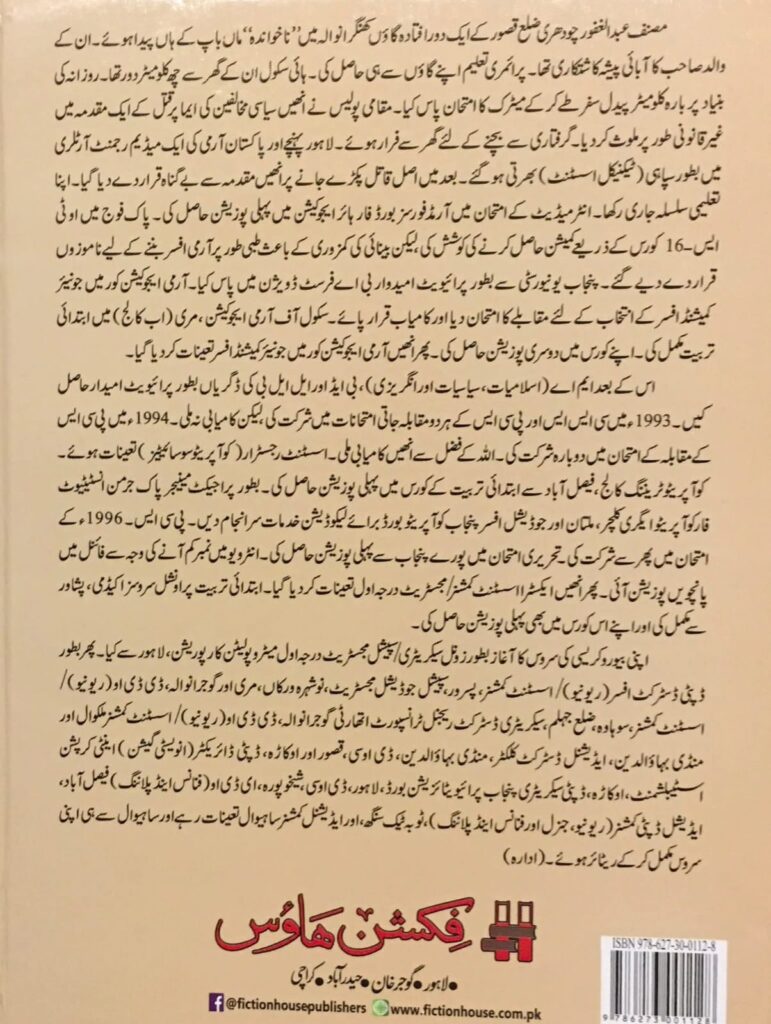 مصنف عبدالغفور چودھری ضلع قصور کے ایک دور افتادہ گاؤں کھنگرانوالہ میں ”ناخواندہ“ ماں باپ کے ہاں پیدا ہوئے۔ ان کے
والد صاحب کا آبائی پیشہ کاشتکاری تھا۔ پرائمری تعلیم اپنے گاؤں سے ہی حاصل کی۔ ہائی سکول ان کے گھر سے چھ کلومیٹر دور تھا۔ روزانہ کی
بنیاد پر بارہ کلومیٹر پیدل سفر طے کر کے میٹرک کا امتحان پاس کیا۔ مقامی پولیس نے انھیں سیاسی مخالفین کی ایما پر قتل کے ایک مقدمہ میں
غیر قانونی طور پر ملوث کر دیا۔ گرفتاری سے بچنے کے لئے گھر سے فرار ہوئے۔ لاہور پہنچے اور پاکستان آرمی کی ایک میڈیم رجمنٹ آرٹلری
میں بطور سپاہی (ٹیکنیکل اسسٹنٹ) بھرتی ہو گئے۔ بعد میں اصل قاتل پکڑے جانے پر انھیں مقدمہ سے بے گناہ قرار دے دیا گیا۔ اپنا
تعلیمی سلسلہ جاری رکھا۔ انٹرمیڈیٹ کے امتحان میں آرمڈ فورسز بورڈ فار ہائر ایجوکیشن میں پہلی پوزیشن حاصل کی۔ پاک فوج میں او ٹی
ایس-16 کورس کے ذریعے کمیشن حاصل کرنے کی کوشش کی، لیکن بینائی کی کمزوری کے باعث طبی طور پر آرمی افسر بننے کے لیے ناموزوں
قرار دے دیے گئے۔ پنجاب یونیورسٹی سے بطور پرائیویٹ امیدوار بی اے فرسٹ ڈویژن میں پاس کیا۔ آرمی ایجوکیشن کور میں جونیئر
کمیشنڈ افسر کے انتخاب کے لئے مقابلے کا امتحان دیا اور کامیاب قرار پائے۔ سکول آف آرمی ایجوکیشن، مری (اب کالج) میں ابتدائی
تربیت مکمل کی۔ اپنے کورس میں دوسری پوزیشن حاصل کی۔ پھر انھیں آرمی ایجوکیشن کور میں جونیئر کمیشنڈ افسر تعینات کر دیا گیا۔
اس کے بعد ایم اے (اسلامیات، سیاسیات اور انگریزی)، بی ایڈ اور ایل ایل بی کی ڈگریاں بطور پرائیویٹ امیدار حاصل
کیں۔ 1993ء میں سی ایس ایس اور پی سی ایس کے ہر دو مقابلہ جاتی امتحانات میں شرکت کی، لیکن کامیابی نہ ملی۔ 1994ء میں پی سی ایس
کے مقابلہ کے امتحان میں دوبارہ شرکت کی۔ اللہ کے فضل سے انھیں کامیابی ملی۔ اسسٹنٹ رجسٹرار (کوآپریٹو سوسائیٹیز) تعینات ہوئے۔
کوآپریٹو ٹریننگ کالج، فیصل آباد سے ابتدائی تربیت کے کورس میں پہلی پوزیشن حاصل کی۔ بطور پراجیکٹ مینیجر پاک جرمن انسٹیٹیوٹ
فار کوآپریٹو ایگری کلچر، ملتان اور جوڈیشل افسر پنجاب کوآپریٹو بورڈ برائے لیکوڈیشن خدمات سرانجام دیں۔ پی سی ایس۔1996ء کے
امتحان میں پھر سے شرکت کی۔ تحریری امتحان میں پورے پنجاب سے پہلی پوزیشن حاصل کی۔ انٹرویو میں نمبر کم آنے کی وجہ سے فائنل میں
پانچویں پوزیشن آئی۔ پھر انھیں ایکسٹرا اسسٹنٹ کمشنر/مجسٹریٹ درجہ اول تعینات کر دیا گیا۔ ابتدائی تربیت پراونشل سروسز اکیڈمی، پشاور
سے مکمل کی اور اپنے اس کورس میں بھی پہلی پوزیشن حاصل کی۔
اپنی بیوروکریسی کی سروس کا آغاز بطور زونل سیکریٹری/سپیشل مجسٹریٹ درجہ اول میٹروپولیٹن کارپوریشن، لاہور سے کیا۔ پھر بطور
ڈپٹی ڈسٹرکٹ افسر (ریونیو)/اسسٹنٹ کمشنر، پسرور، سپیشل جوڈیشل مجسٹریٹ، نوشہرہ ورکاں، مری اور گوجرانوالہ، ڈی ڈی او (ریونیو)/
اسسٹنٹ کمشنر، سوہاوہ، ضلع جہلم، سیکریٹری ڈسٹرکٹ ریجنل ٹرانسپورٹ اتھارٹی گوجرانوالہ، ڈی ڈی او (ریونیو)/اسسٹنٹ کمشنر ملکوال اور
منڈی بہاؤالدین، ایڈیشنل ڈسٹرکٹ کلکٹر، منڈی بہاؤالدین، ڈی او سی، قصور اور اوکاڑہ، ڈپٹی ڈائریکٹر (انویسٹی گیشن) اینٹی کرپشن
اسٹیبلشمنٹ، اوکاڑہ، ڈپٹی سیکریٹری پنجاب پرائیویٹائزیشن بورڈ، لاہور، ڈی او سی، شیخوپورہ، ای ڈی او (فنانس اینڈ پلاننگ) فیصل آباد،
ایڈیشل ڈپٹی کمشنر (ریونیو، جنرل اور فنانس اینڈ پلاننگ)، ٹوبہ ٹیک سنگھ، اور ایڈیشنل کمشنر ساہیوال تعینات رہے اور ساہیوال سے ہی اپنی
سروس مکمل کر کے ریٹائر ہوئے۔ (ادارہ)
فکشن ہاؤس
●لاہور ●گوجرخان ●حیدرآباد ●کراچی
@fictionhousepublishers www.fictionhouse.com.pk
ISBN 978-627-30-0112-8
9 786273 001128